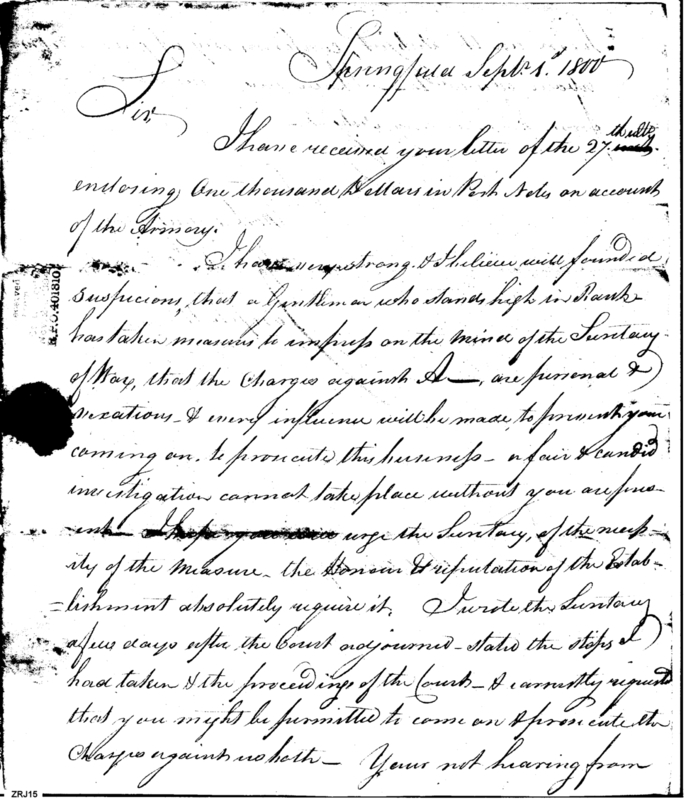 Springfield Sept. 1st 1800
Sir,
I have received your letter of the 27th ulto
enclosing One thousand Dollars in Post Notes on account
of the Armory.
I have very strong & I believe well founded
suspicions, that a Gentleman who stands high in Rank
has taken measures to impress on the Mind of the Secretary
of War, that the Charges against A—, are personal &
vexatious – & every influence will be made to prevent your
coming on to prosecute this business – a fair & candid
investigation cannot take place without you are pres-
ent – I hope you will urge the Secretary, of the necess-
ity of the Measure – the Honour & reputation of the Estab-
=lishment absolutely require it. I wrote the Secretary
a few days after the Court adjourned – stated the steps I
had taken & the proceedings of the Court – & earnestly requested
that you might be permitted to come on & prosecute the
Charges against us both – Your not hearing from
H.P.O. 401810
ZRJ15